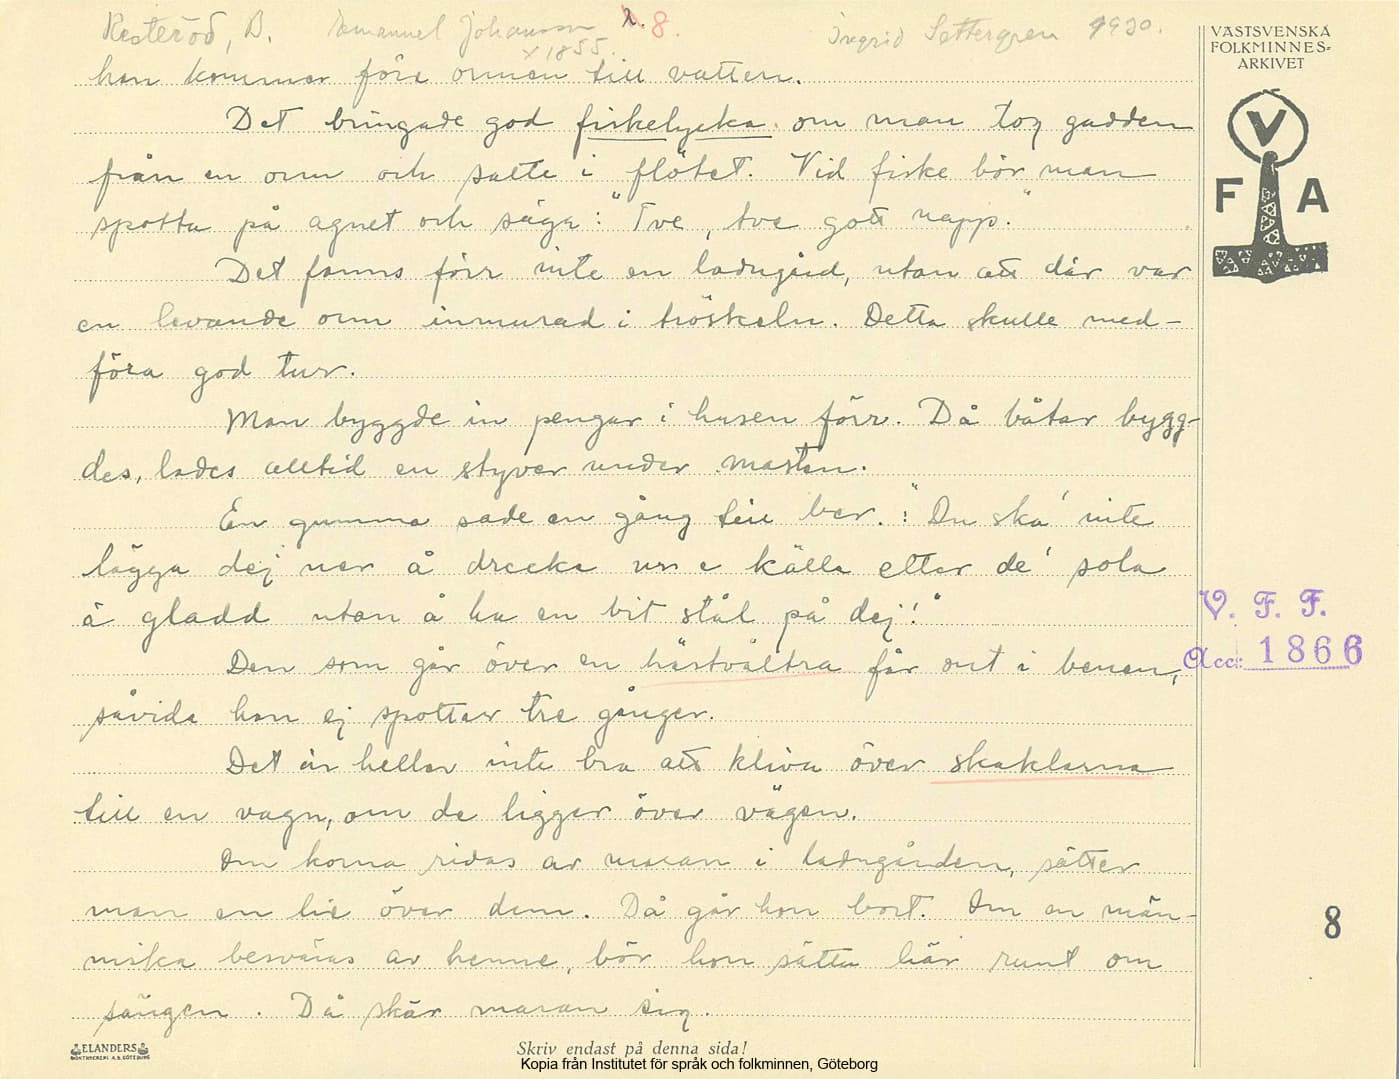 Resteröd, B. Emanuel Johansson 8. Ingrid Settergren 1930.
x 1855.
VÄSTSVENSKA
FOLKMINNES-
ARKIVET
V
F A
han kommer föra ormen till vatten.
Det bringade god fiskelycka om man tog gadden
från en orm och satte i flötet. Vid fiske bör man
spotta på agnet och säga: "Tve, tve gott napp."
Det fanns förr inte en ladugård, utan att där var
en levande orm inmurad i tröskeln. Detta skulle med-
föra god tur.
Man byggde in pengar i husen förr. Då båtar bygg-
des, lades alltid en styver under masten.
En gumma sade en gång till ber.: "Du ska' inte
lägga dej ner å dricka ur e källa etter de' sola
ä gladd utan å ha en bit stål på dej!"
Den som går över en hästvältra får ont i benen,
såvida han ej spottar tre gånger.
Det är heller inte bra att kliva över skaklarna
till en vagn, om de ligger över vägen.
Om korna ridas av maran i ladugården, sätter
man en lie över dem. Då går hon bort. Om en män-
niska besväras av henne, bör hon sätta liär runt om
sängen. Då skär maran sig.
V. F. F.
Acc: 1866
8
ELANDERS
BOKTRYCKERI A.B. GÖTEBORG
Skriv endast på denna sida!
Kopia från Institutet för språk och folkminnen, Göteborg